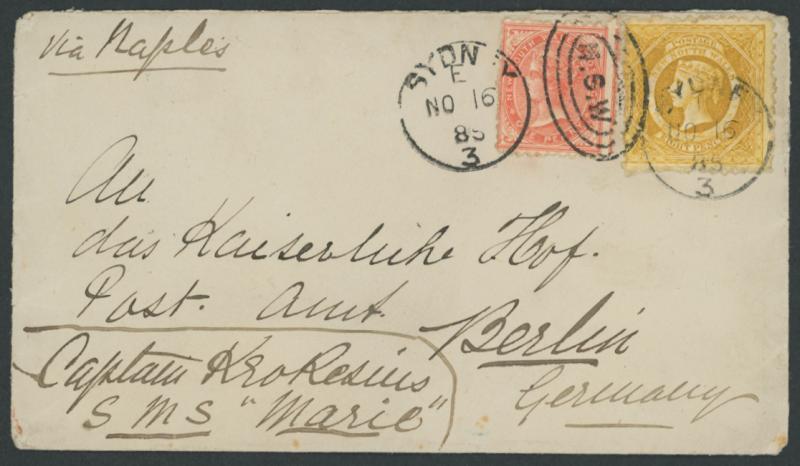 via Naples
SYDNEY
E
NO 16
85
3
NEW SOUTH
N.S.W
POSTAGE
NEW SOUTH WALES
EIGHT PENCE
SYDNE
NO 16
85
3
An
das Kaiserliche Hof.
Post. Amt.
Berlin
Germany
Captain Krokesius
SMS "Marie"